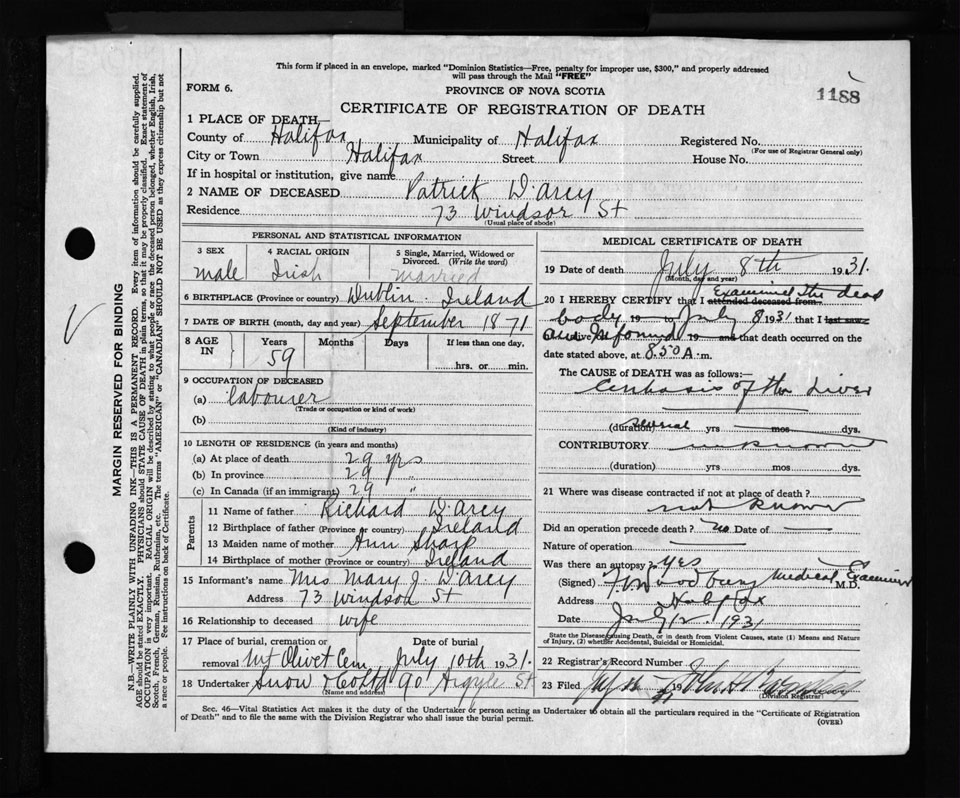 This form if placed in an envelope, marked "Dominion Statistics—Free, penalty for improper use, $300," and properly addressed
will pass through the Mail "FREE"
FORM 6.
PROVINCE OF NOVA SCOTIA
1188
CERTIFICATE OF REGISTRATION OF DEATH
1 PLACE OF DEATH—
County of Halifax Municipality of Halifax Registered No.
(For use of Registrar General only)
City or Town Halifax Street House No.
If in hospital or institution, give name
2 NAME OF DECEASED Patrick D'arcy
Residence 73 Windsor St
(Usual place of abode)
PERSONAL AND STATISTICAL INFORMATION
3 SEX 4 RACIAL ORIGIN 5 Single, Married, Widowed or Divorced. (Write the word)
male Irish married
6 BIRTHPLACE (Province or country) Dublin. Ireland
7 DATE OF BIRTH (month, day and year) September 1871
8 AGE IN Years Months Days If less than one day,
59 hrs. or min.
9 OCCUPATION OF DECEASED
(a) labourer
(Trade or occupation or kind of work)
(b)
(Kind of industry)
10 LENGTH OF RESIDENCE (in years and months)
(a) At place of death 29 yrs
(b) In province 29 "
(c) In Canada (if an immigrant) 29 "
Parents
11 Name of father Richard D'arcy
12 Birthplace of father (Province or country) Ireland
13 Maiden name of mother Ann Sharp
14 Birthplace of mother (Province or country) Ireland
15 Informant's name Mrs Mary J. D'arcy
Address 73 Windsor St
16 Relationship to deceased wife
17 Place of burial, cremation or Date of burial
removal Mt Olivet Cem July 10th 1931.
18 Undertaker Snow & Co Ltd 90 Argyle St
(Name and address)
MEDICAL CERTIFICATE OF DEATH
19 Date of death July 8th 1931.
(Month, day and year)
20 I HEREBY CERTIFY that I attended deceased from Examined the dead
body 19 to July 8 1931 that I last saw
alive 19 and that death occurred on the
date stated above, at 8.50 A.m.
The CAUSE of DEATH was as follows:—
Cirrhosis of the Liver
(duration) Several yrs mos dys.
CONTRIBUTORY unknown
(duration) yrs mos dys.
21 Where was disease contracted if not at place of death?
not known
Did an operation precede death? no Date of
Nature of operation
Was there an autopsy? yes
(Signed) Medical Examiner M.D.
Address Halifax
Date 1931
State the Disease causing Death, or in death from Violent Causes, state (1) Means and Nature
of Injury, (2) whether Accidental, Suicidal or Homicidal.
22 Registrar's Record Number
23 Filed 19
(Division Registrar)
Sec. 46—Vital Statistics Act makes it the duty of the Undertaker or person acting as Undertaker to obtain all the particulars required in the "Certificate of Registration
of Death" and to file the same with the Division Registrar who shall issue the burial permit.
(OVER)
MARGIN RESERVED FOR BINDING
N.B.—WRITE PLAINLY WITH UNFADING INK—THIS IS A PERMANENT RECORD. Every item of information should be carefully supplied.
AGE should be stated EXACTLY. PHYSICIANS should STATE CAUSE OF DEATH in plain terms, so that it may be properly classified. Exact statement of
OCCUPATION is very important. RACIAL ORIGIN will be described by stating to what people or race the deceased person belonged, whether English, Irish,
Scotch, French, German, Russian, Ruthenian, etc. The terms "AMERICAN" or "CANADIAN" SHOULD NOT BE USED as they express citizenship but not
a race or people. See instructions on back of Certificate.